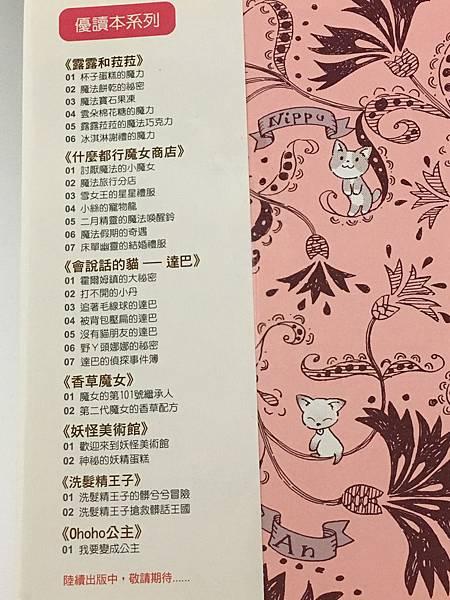 優讀本系列
《露露和菈菈》
01 杯子蛋糕的魔力
02 魔法餅乾的祕密
03 魔法寶石果凍
04 雲朵棉花糖的魔力
05 露露菈菈的魔法巧克力
06 冰淇淋謝禮的魔力
《什麼都行魔女商店》
01 討厭魔法的小魔女
02 魔法旅行分店
03 雪女王的星星禮服
04 小絲的寵物龍
05 二月精靈的魔法喚醒鈴
06 魔法假期的奇遇
07 床單幽靈的結婚禮服
《會說話的貓 — 達巴》
01 霍爾姆鎮的大祕密
02 打不開的小丹
03 追著毛線球的達巴
04 被背包壓扁的達巴
05 沒有貓朋友的達巴
06 野ㄚ頭娜娜的祕密
07 達巴的偵探事件簿
《香草魔女》
01 魔女的第101號繼承人
02 第二代魔女的香草配方
《妖怪美術館》
01 歡迎來到妖怪美術館
02 神祕的妖精蛋糕
《洗髮精王子》
01 洗髮精王子的髒兮兮冒險
02 洗髮精王子搶救髒話王國
《Ohoho公主》
01 我要變成公主
陸續出版中，敬請期待......
Nippu
An